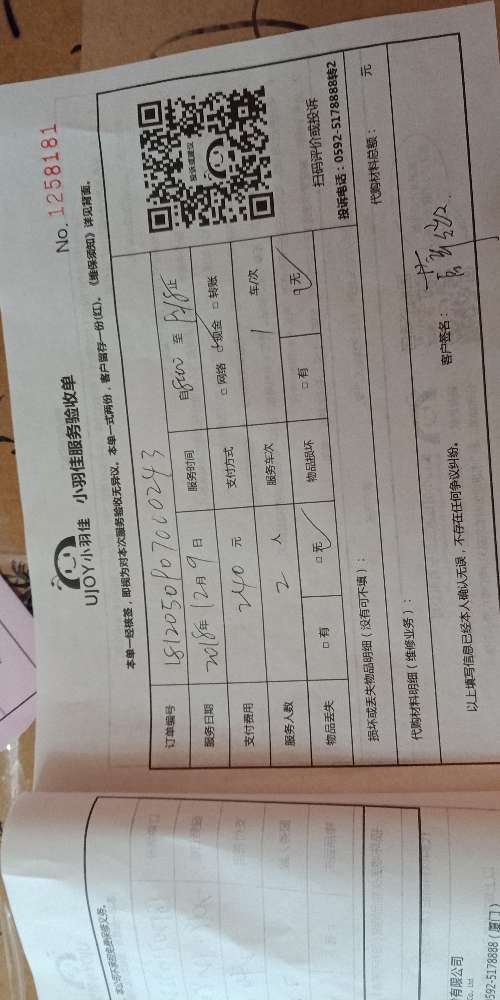 UJOY小羽佳 小羽佳服务验收单
No. 1258181
本单一经核签，即视为对本次服务验收无异议。本单一式两份，客户留存一份(红)。《维保须知》详见背面。
订单编号 1812050907000243
服务日期 2018年 12月 9日 服务时间 自8:00 至 止
支付费用 240 元 支付方式 □网络 □现金 □转账
服务人数 2 人 服务车次 1 车/次
物品丢失 □有 □无 物品损坏 □有 □无
验收或建议
扫码评价或投诉
投诉电话：0592-5178888转2
损坏或丢失物品明细（没有可不填）：
代购材料明细（维修业务）： 代购材料总额： 元
以上填写信息已经本人确认无误，不存在任何争议纠纷。 客户签名：
有限公司
Co., Ltd
592-5178888（厦门）